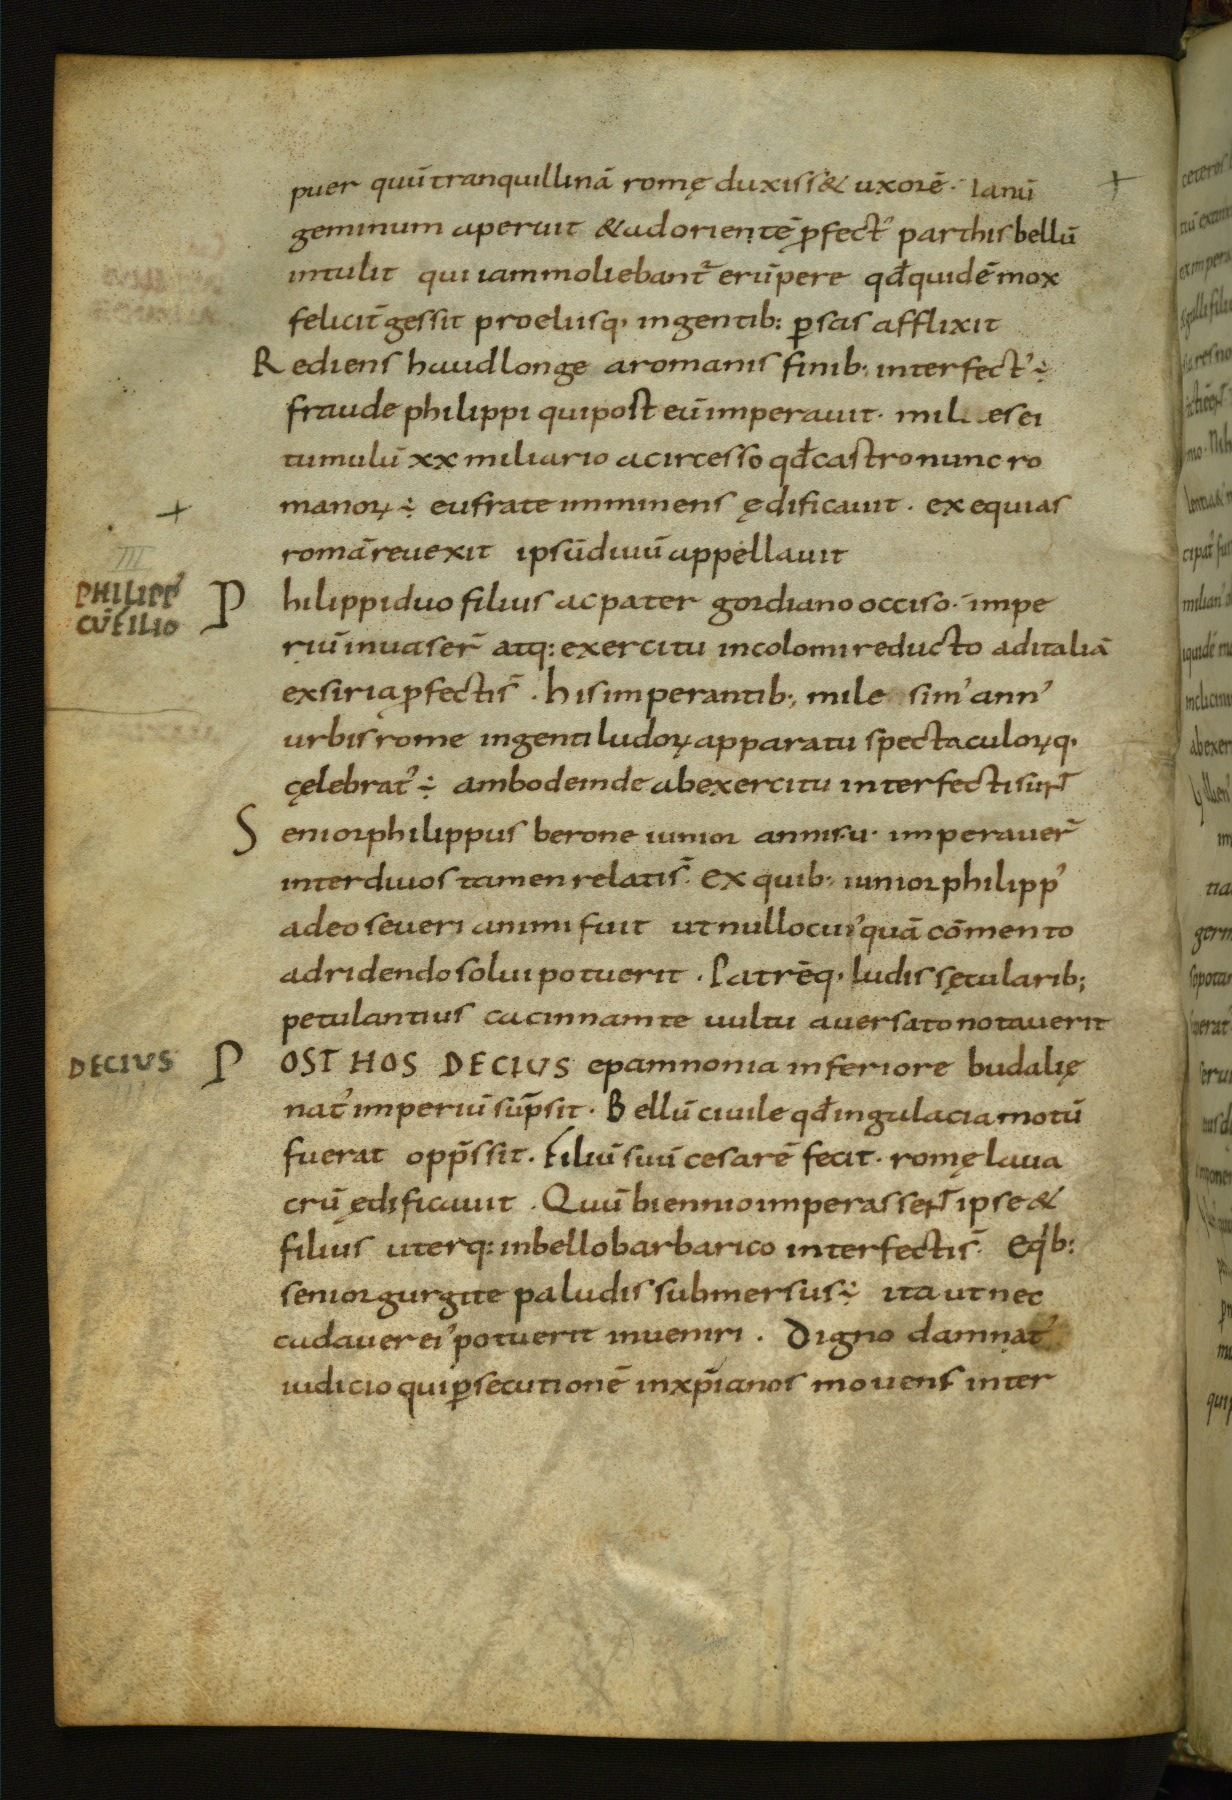 puer quū tranquillinā romę duxiss& uxorē· Ianū
geminum aperuit & ad orientē ꝓfect᾽ parthis bellū
intulit qui iam moliebant᷑ erūpere qđ quidē mox
felicit̄ gessit proeliisq· ingentib: ꝑsas afflixit
Rediens haud longe a romanis finib; interfect᾽ ÷
fraude philippi qui post eū imperauit· mil es ei
tumulū xx miliario a circesso qđ castro nunc ro
manoꝝ ÷ eufrate imminens ędificauit· exequias
romā reuexit ipsū diuū appellauit
PHILIPP᾽
CŪ FILIO
Philippi duo filius ac pater gordiano occiso· impe
riū inuaser̄ atq: exercitu incolomi reducto ad italiā
ex siria ꝓfecti s̄· his imperantib; mile sim᾽ ann᾽
urbis rome ingenti ludoꝝ apparatu spectaculoꝝq·
cęlebrat᾽ ÷ ambo deinde ab exercitu interfecti sunt
Senior philippus berone iunior annis·u· imperauer̄
inter diuos tamen relati s̄· Ex quib; iunior philipp᾽
adeo seueri animi fuit ut nullo cui᾽quā cōmento
ad ridendo solui potuerit· Patrēq· ludis sęcularib;
petulantius cacinnamte uultu auersato notauerit
DECIUS
POST HOS DECIUS e pamnonia inferiore budalię
nat᾽ imperiū sūpsit· Bellū ciuile qđ in gulacia motū
fuerat opp̄ssit· Filiū suū cesarē fecit· romę laua
crū ędificauit· Quū biennio imperassent ipse &
filius uterq: in bello barbarico interfecti s̄· Eqb:
senior gurgite paludis submersus ÷ ita ut nec
cadauer ei᾽ potuerit inueniri· Digno damnat᾽
iudicio qui ꝑsecutionē in xp̄ianos mouens inter